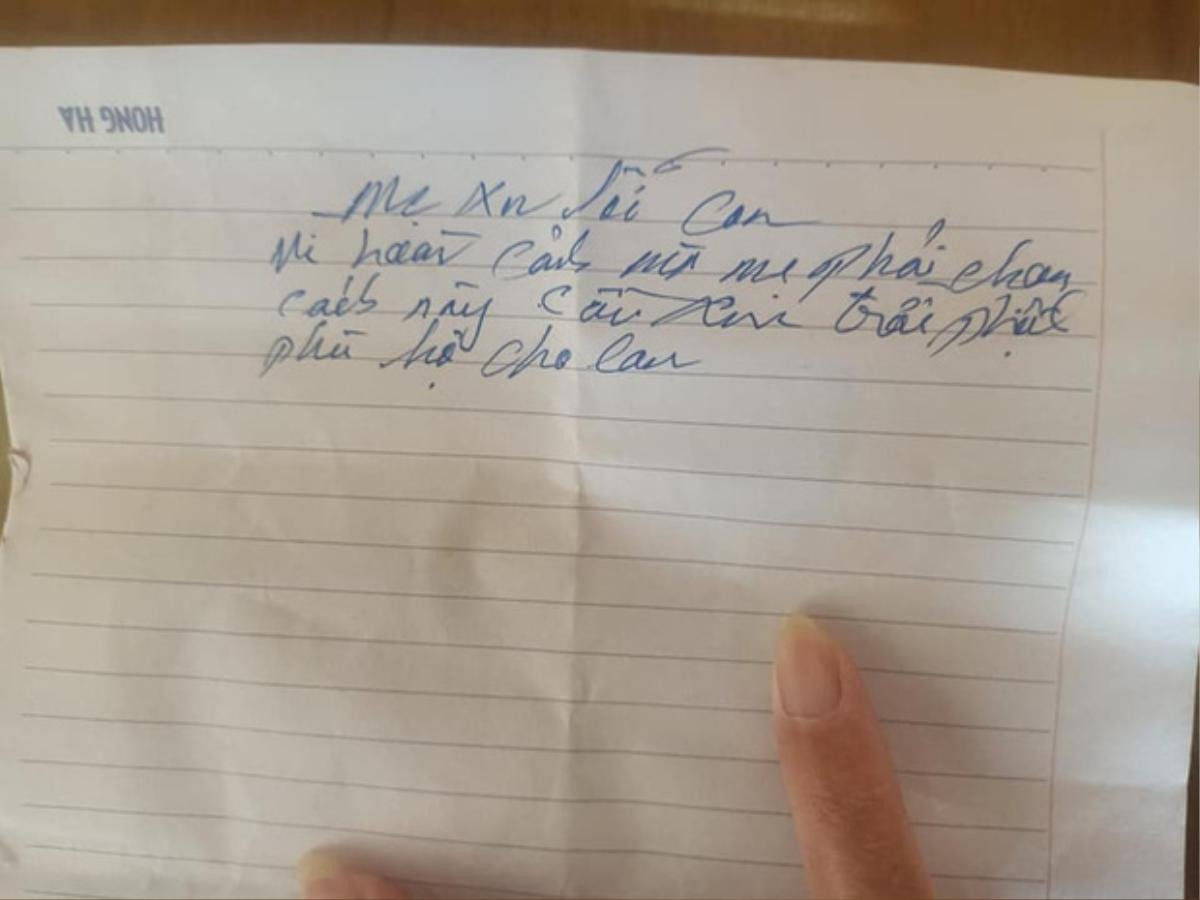 HONG HA
Mẹ xin lỗi con
Vì hoàn cảnh mà mẹ phải chọn
cách này cầu xin trời phật
phù hộ cho con